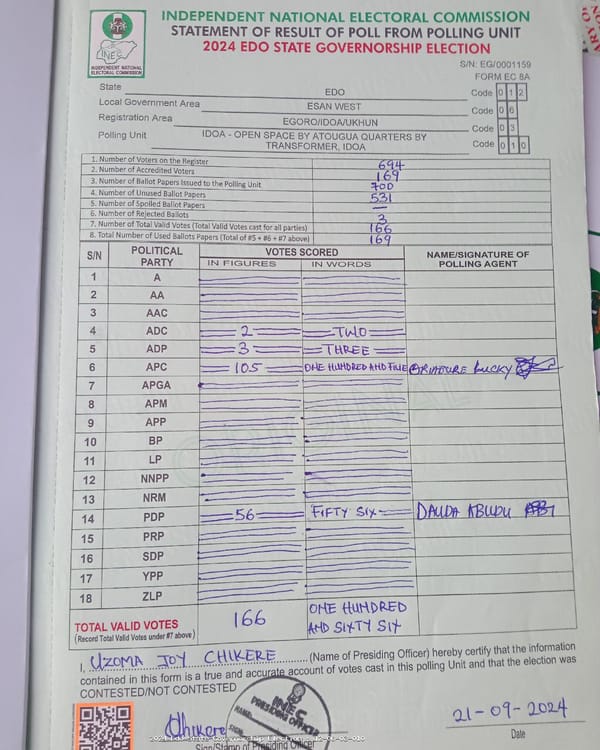 INDEPENDENT NATIONAL ELECTORAL COMMISSION
STATEMENT OF RESULT OF POLL FROM POLLING UNIT
2024 EDO STATE GOVERNORSHIP ELECTION
INEC
INDEPENDENT NATIONAL
ELECTORAL COMMISSION
S/N: EG/0001159
FORM EC 8A
State EDO Code 0 1 2
Local Government Area ESAN WEST Code 0 6
Registration Area EGORO/IDOA/UKHUN Code 0 3
Polling Unit IDOA - OPEN SPACE BY ATOUGUA QUARTERS BY Code 0 1 0
TRANSFORMER, IDOA
1. Number of Voters on the Register 694
2. Number of Accredited Voters 169
3. Number of Ballot Papers Issued to the Polling Unit 700
4. Number of Unused Ballot Papers 531
5. Number of Spoiled Ballot Papers —
6. Number of Rejected Ballots 3
7. Number of Total Valid Votes (Total Valid Votes cast for all parties) 166
8. Total Number of Used Ballots Papers (Total of #5 + #6 + #7 above) 169
S/N POLITICAL PARTY VOTES SCORED NAME/SIGNATURE OF POLLING AGENT
IN FIGURES IN WORDS
1 A
2 AA
3 AAC
4 ADC 2 TWO
5 ADP 3 THREE
6 APC 105 ONE HUNDRED AND FIVE LUCKY
7 APGA
8 APM
9 APP
10 BP
11 LP
12 NNPP
13 NRM
14 PDP 56 FIFTY SIX DAUDA ABUDU
15 PRP
16 SDP
17 YPP
18 ZLP
TOTAL VALID VOTES 166 ONE HUNDRED
(Record Total Valid Votes under #7 above) AND SIXTY SIX
I, UZOMA JOY CHIKERE (Name of Presiding Officer) hereby certify that the information
contained in this form is a true and accurate account of votes cast in this polling Unit and that the election was
CONTESTED/NOT CONTESTED
INEC
PRESIDING OFFICER
NAME:
SIGN:
Chikere
21-09-2024
Sign/Stamp of Presiding Officer
Date